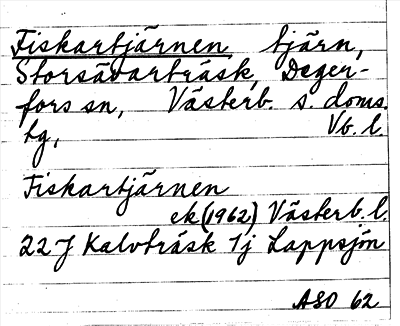 Fiskartjärnen tjärn,
Storsävarträsk, Deger-
fors sn, Västerb. s. doms.
tg, Vb. l.
Fiskartjärnen
ek (1962) Västerb. l.
22 J Kalvträsk 1j Lappsjön
ASO 62